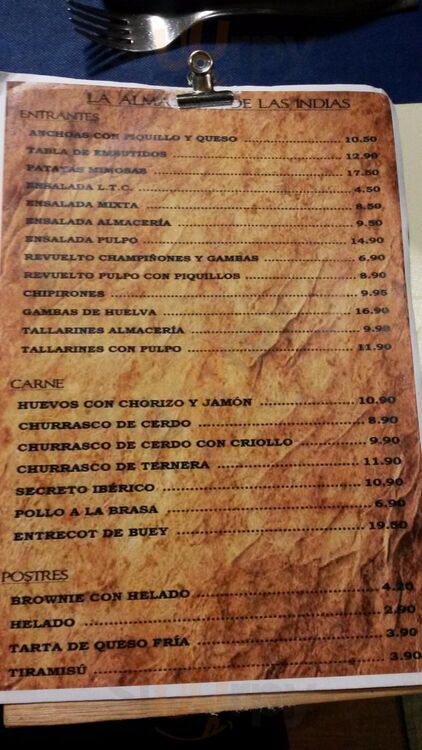 LA ALMA DE LAS INDIAS
ENTRANTES
ANCHOAS CON PIQUILLO Y QUESO 10.50
TABLA DE EMBUTIDOS 12.90
PATATAS MIMOSAS 17.50
ENSALADA L.T.C. 4.50
ENSALADA MIXTA 8.50
ENSALADA ALMACERÍA 9.50
ENSALADA PULPO 14.90
REVUELTO CHAMPIÑONES Y GAMBAS 6.90
REVUELTO PULPO CON PIQUILLOS 8.90
CHIPIRONES 9.95
GAMBAS DE HUELVA 16.90
TALLARINES ALMACERÍA 9.90
TALLARINES CON PULPO 11.90
CARNE
HUEVOS CON CHORIZO Y JAMÓN 10.90
CHURRASCO DE CERDO 8.90
CHURRASCO DE CERDO CON CRIOLLO 9.90
CHURRASCO DE TERNERA 11.90
SECRETO IBÉRICO 10,90
POLLO A LA BRASA 6.90
ENTRECOT DE BUEY 19.50
POSTRES
BROWNIE CON HELADO 4.20
HELADO 2.90
TARTA DE QUESO FRÍA 3.90
TIRAMISÚ 3.90